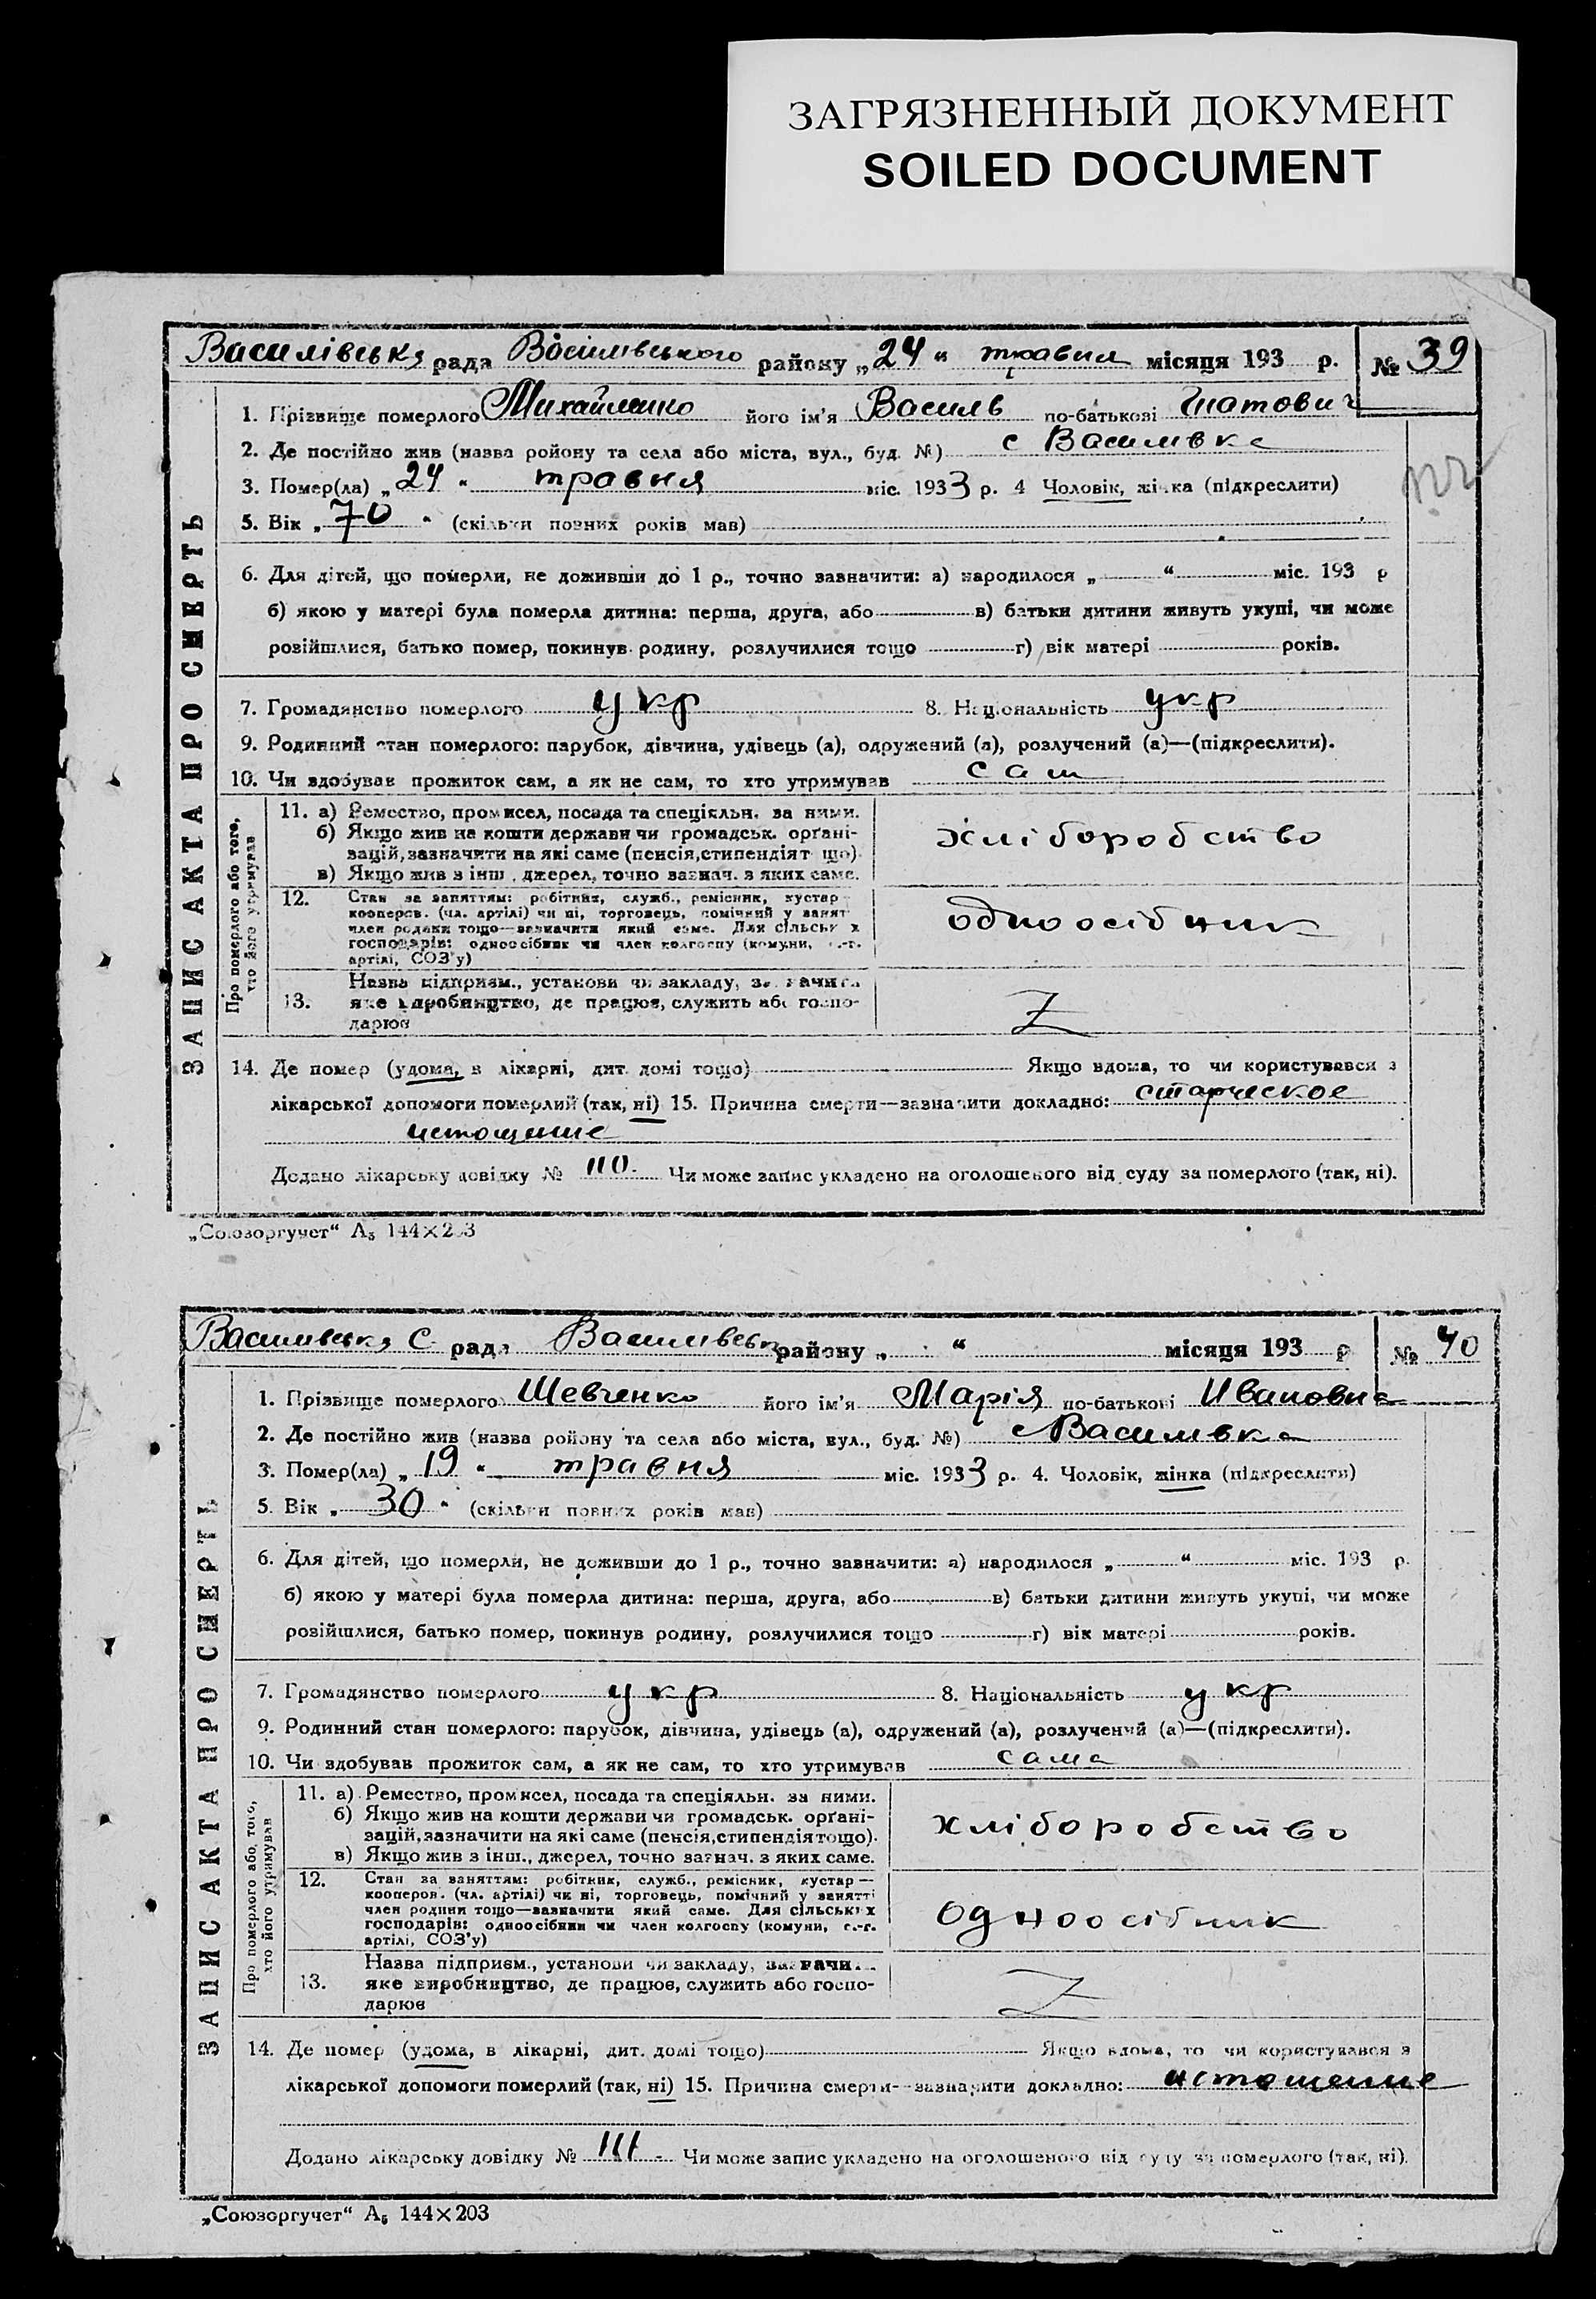 ЗАГРЯЗНЕННЫЙ ДОКУМЕНТ
SOILED DOCUMENT
Василівська рада Васілівського району „24“ травня місяця 193 р. № 39
ЗАПИС АКТА ПРО СМЕРТЬ
1. Прізвище померлого Михайленко його ім'я Василь по-батькові
2. Де постійно жив (назва ройону та села або міста, вул., буд. №) с Василівка
3. Помер(ла) „24“ травня міс. 1933 р. 4 Чоловік, жінка (підкреслити)
5. Вік „70“ (скільки повних років мав)
6. Для дітей, що померли, не доживши до 1 р., точно зазначити: а) народилося „ “ міс. 193 р
б) якою у матері була померла дитина: перша, друга, або в) батьки дитини живуть укупі, чи може
розійшлися, батько помер, покинув родину, розлучилися тощо г) вік матері років.
7. Громадянство померлого укр 8. Національність укр
9. Родинний стан померлого: парубок, дівчина, удівець (а), одружений (а), розлучений (а)—(підкреслити).
10. Чи здобував прожиток сам, а як не сам, то хто утримував сам
Про померлого або того, хто його утримував
11. а) Ремество, промисел, посада та спеціяльн. за ними.
б) Якщо жив на кошти держави чи громадськ. орґані-
зацій, зазначити на які саме (пенсія, стипендія тощо).
в) Якщо жив з інш., джерел, точно зазнач. з яких саме.
хліборобство
12. Стан за заняттям: робітник, служб., ремісник, кустар—
кооперов. (чл. артілі) чи ні, торговець, помічний у занятті
член родини тощо—зазначити який саме. Для сільських
господарів: одноосібник чи член колгоспу (комуни, с.-г.
артілі, СОЗ'у)
одноосібник
13. Назва підприєм., установи чи закладу, зазначити
яке виробництво, де працює, служить або госпо-
дарює
Z
14. Де помер (удома, в лікарні, дит. домі тощо) Якщо вдома, то чи користувався з
лікарської допомоги померлий (так, ні) 15. Причина смерти—зазначити докладно: старческое
истощение
Додано лікарську довідку № 110. Чи може запис укладено на оголошеного від суду за померлого (так, ні).
„Союзоргучет“ А5 144×203
Василівська С. рада Василівськ району „ “ місяця 193 р № 40
ЗАПИС АКТА ПРО СМЕРТЬ
1. Прізвище померлого Шевченко його ім'я Марія по-батькові Ивановна
2. Де постійно жив (назва ройону та села або міста, вул., буд. №) с Василівка
3. Помер(ла) „19“ травня міс. 1933 р. 4. Чоловік, жінка (підкреслити)
5. Вік „30“ (скільки повних років мав)
6. Для дітей, що померли, не доживши до 1 р., точно зазначити: а) народилося „ “ міс. 193 р.
б) якою у матері була померла дитина: перша, друга, або в) батьки дитини живуть укупі, чи може
розійшлися, батько помер, покинув родину, розлучилися тощо г) вік матері років.
7. Громадянство померлого укр 8. Національність укр
9. Родинний стан померлого: парубок, дівчина, удівець (а), одружений (а), розлучений (а)—(підкреслити).
10. Чи здобував прожиток сам, а як не сам, то хто утримував сама
Про померлого або того, хто його утримував
11. а) Ремество, промисел, посада та спеціяльн. за ними.
б) Якщо жив на кошти держави чи громадськ. орґані-
зацій, зазначити на які саме (пенсія, стипендія тощо).
в) Якщо жив з інш., джерел, точно зазнач. з яких саме.
хліборобство
12. Стан за заняттям: робітник, служб., ремісник, кустар—
кооперов. (чл. артілі) чи ні, торговець, помічний у занятті
член родини тощо—зазначити який саме. Для сільських
господарів: одноосібник чи член колгоспу (комуни, с.-г.
артілі, СОЗ'у)
одноосібник
13. Назва підприєм., установи чи закладу, зазначи
яке виробництво, де працює, служить або госпо-
дарює
Z
14. Де помер (удома, в лікарні, дит. домі тощо) Якщо вдома, то чи користувався з
лікарської допомоги померлий (так, ні) 15. Причина смерти—зазначити докладно: истощение
Додано лікарську довідку № 111. Чи може запис укладено на оголошеного від суду за померлого (так, ні).
„Союзоргучет“ А5 144×203